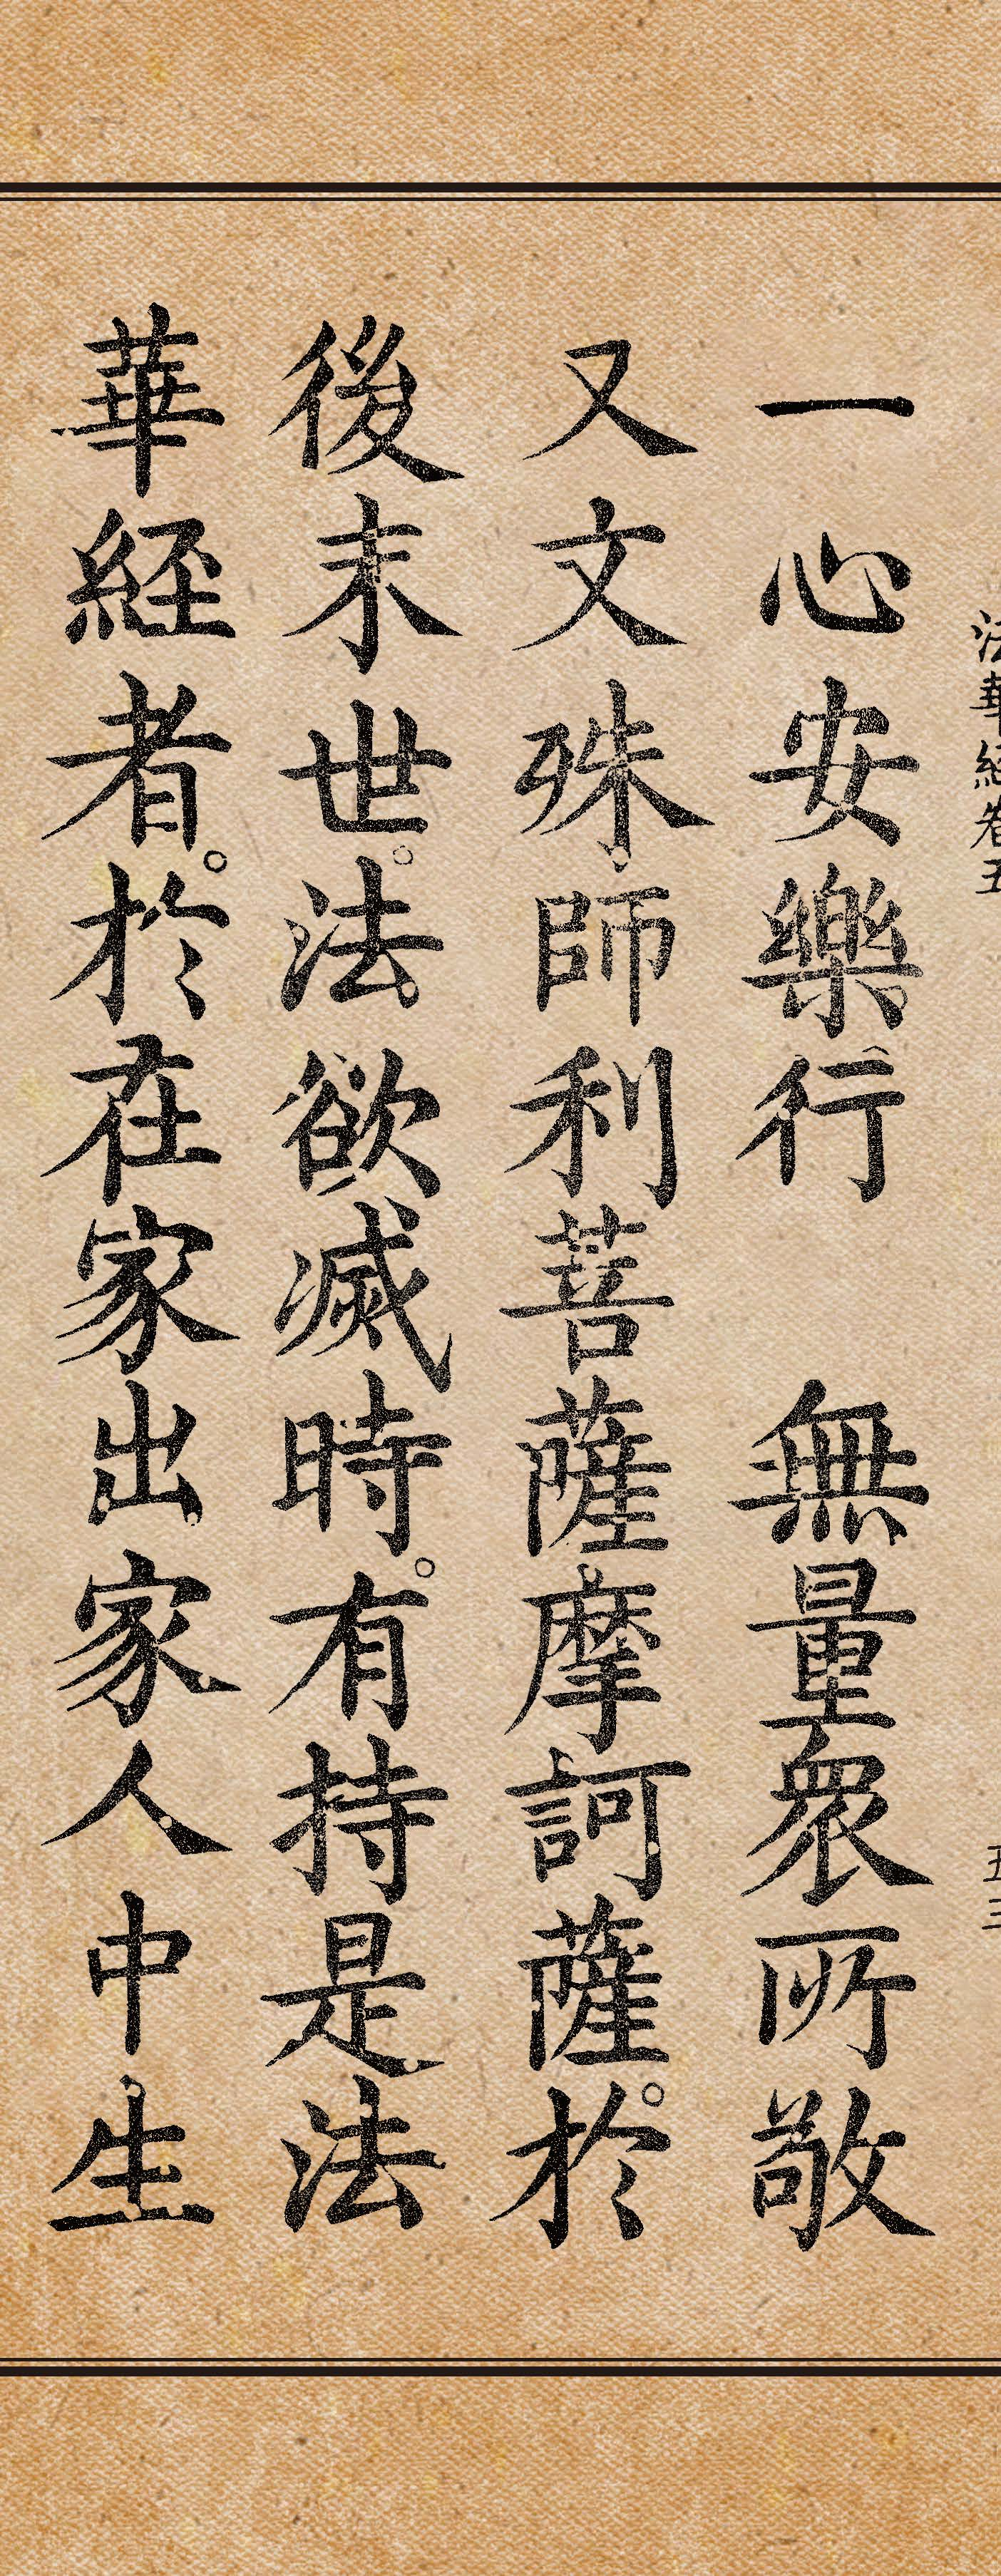 法華經卷五
五三
一心安樂行　無量衆所敬
又文殊師利菩薩摩訶薩。於
後末世。法欲滅時。有持是法
華經者。於在家出家人中生